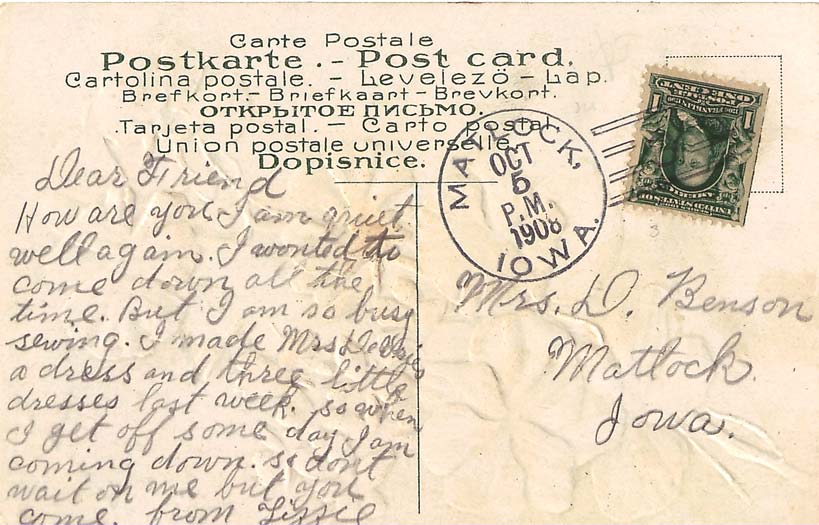 Carte Postale
Postkarte. - Post card.
Cartolina postale. - Levelezö - Lap.
Brefkort. - Briefkaart - Brevkort.
ОТКРЫТОЕ ПИСЬМО.
Tarjeta postal. - Carto postal
Union postale universelle
Dopisnice.
MATLOCK,
OCT
5
P.M.
1908
IOWA.
1 1
ONE CENT
POSTAGE
UNITED STATES OF
AMERICA
Dear Friend
How are you I am quiet
well again. I wonted to
come down all the
time. But I am so busy
sewing. I made Mrs
a dress and three little
dresses last week. so when
I get off some day I am
coming down. so dont
wait on me but you
come. from Lissie
Mrs. D. Benson
Matlock.
Iowa.
3